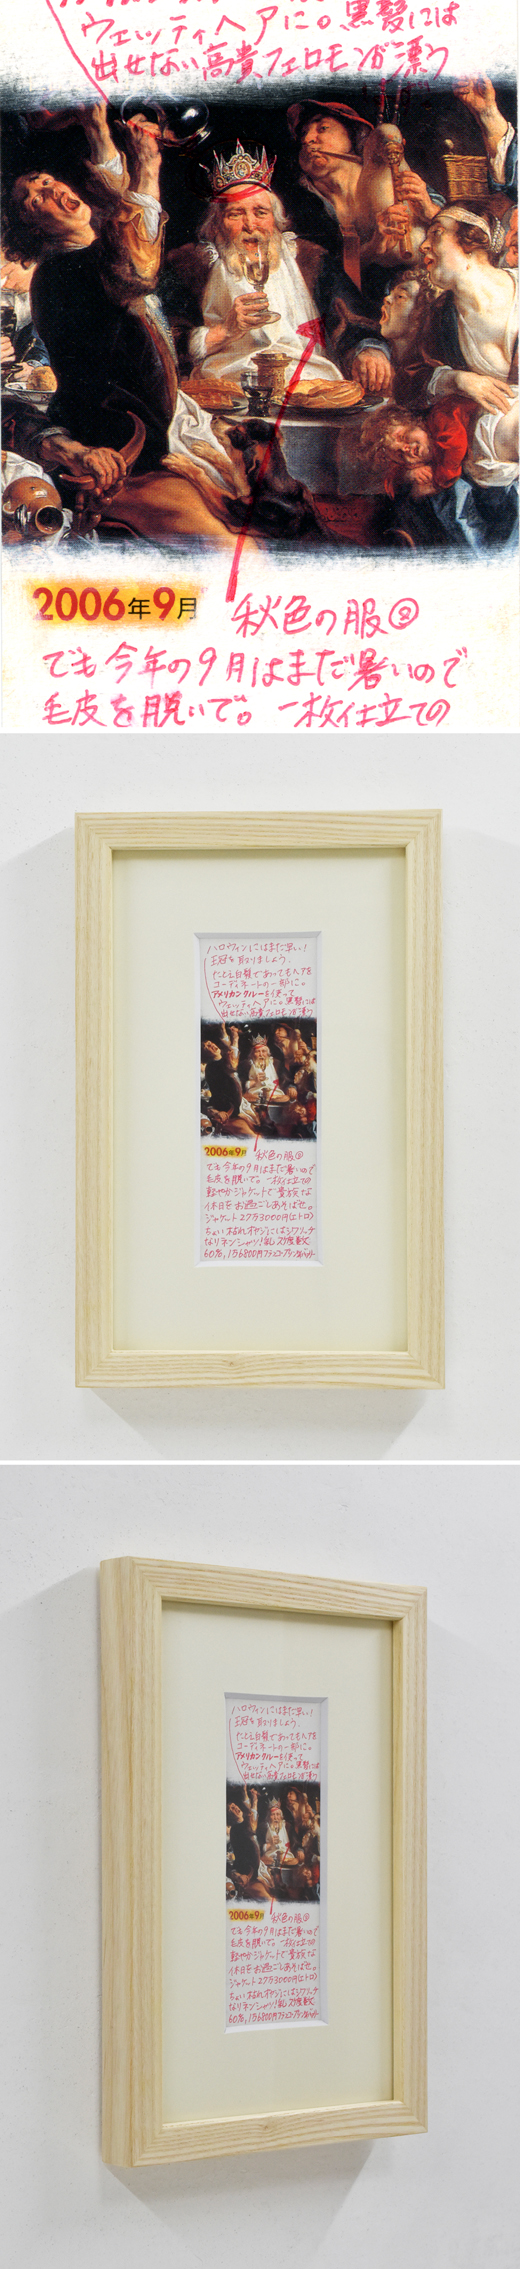 ウェッティヘアに。黒髪には
出せない高貴フェロモンが漂う
2006年9月
秋色の服②
でも今年の9月はまだ暑いので
毛皮を脱いで。一枚仕立ての
ハロウィンにはまだ早い!
王冠を取りましょう。
たとえ白髪であってもヘアを
コーディネートの一部に。
アメリカンクルーを使って
ウェッティヘアに。黒髪には
出せない高貴フェロモンが漂う
2006年9月
秋色の服②
でも今年の9月はまだ暑いので
毛皮を脱いで。一枚仕立ての
軽やかジャケットで貴族な
休日をお過ごしあそばせ。
ジャケット27万3000円(エトロ)
ちょい枯れオヤジにはシワリッチ
なリネンシャツ!乱れ度数
60%,156800円
ハロウィンにはまだ早い!
王冠を取りましょう。
たとえ白髪であってもヘアを
コーディネートの一部に。
アメリカンクルーを使って
ウェッティヘアに。黒髪には
出せない高貴フェロモンが漂う
2006年9月
秋色の服②
でも今年の9月はまだ暑いので
毛皮を脱いで。一枚仕立ての
軽やかジャケットで貴族な
休日をお過ごしあそばせ。
ジャケット27万3000円(エトロ)
ちょい枯れオヤジにはシワリッチ
なリネンシャツ!乱れ度数
60%,156800円